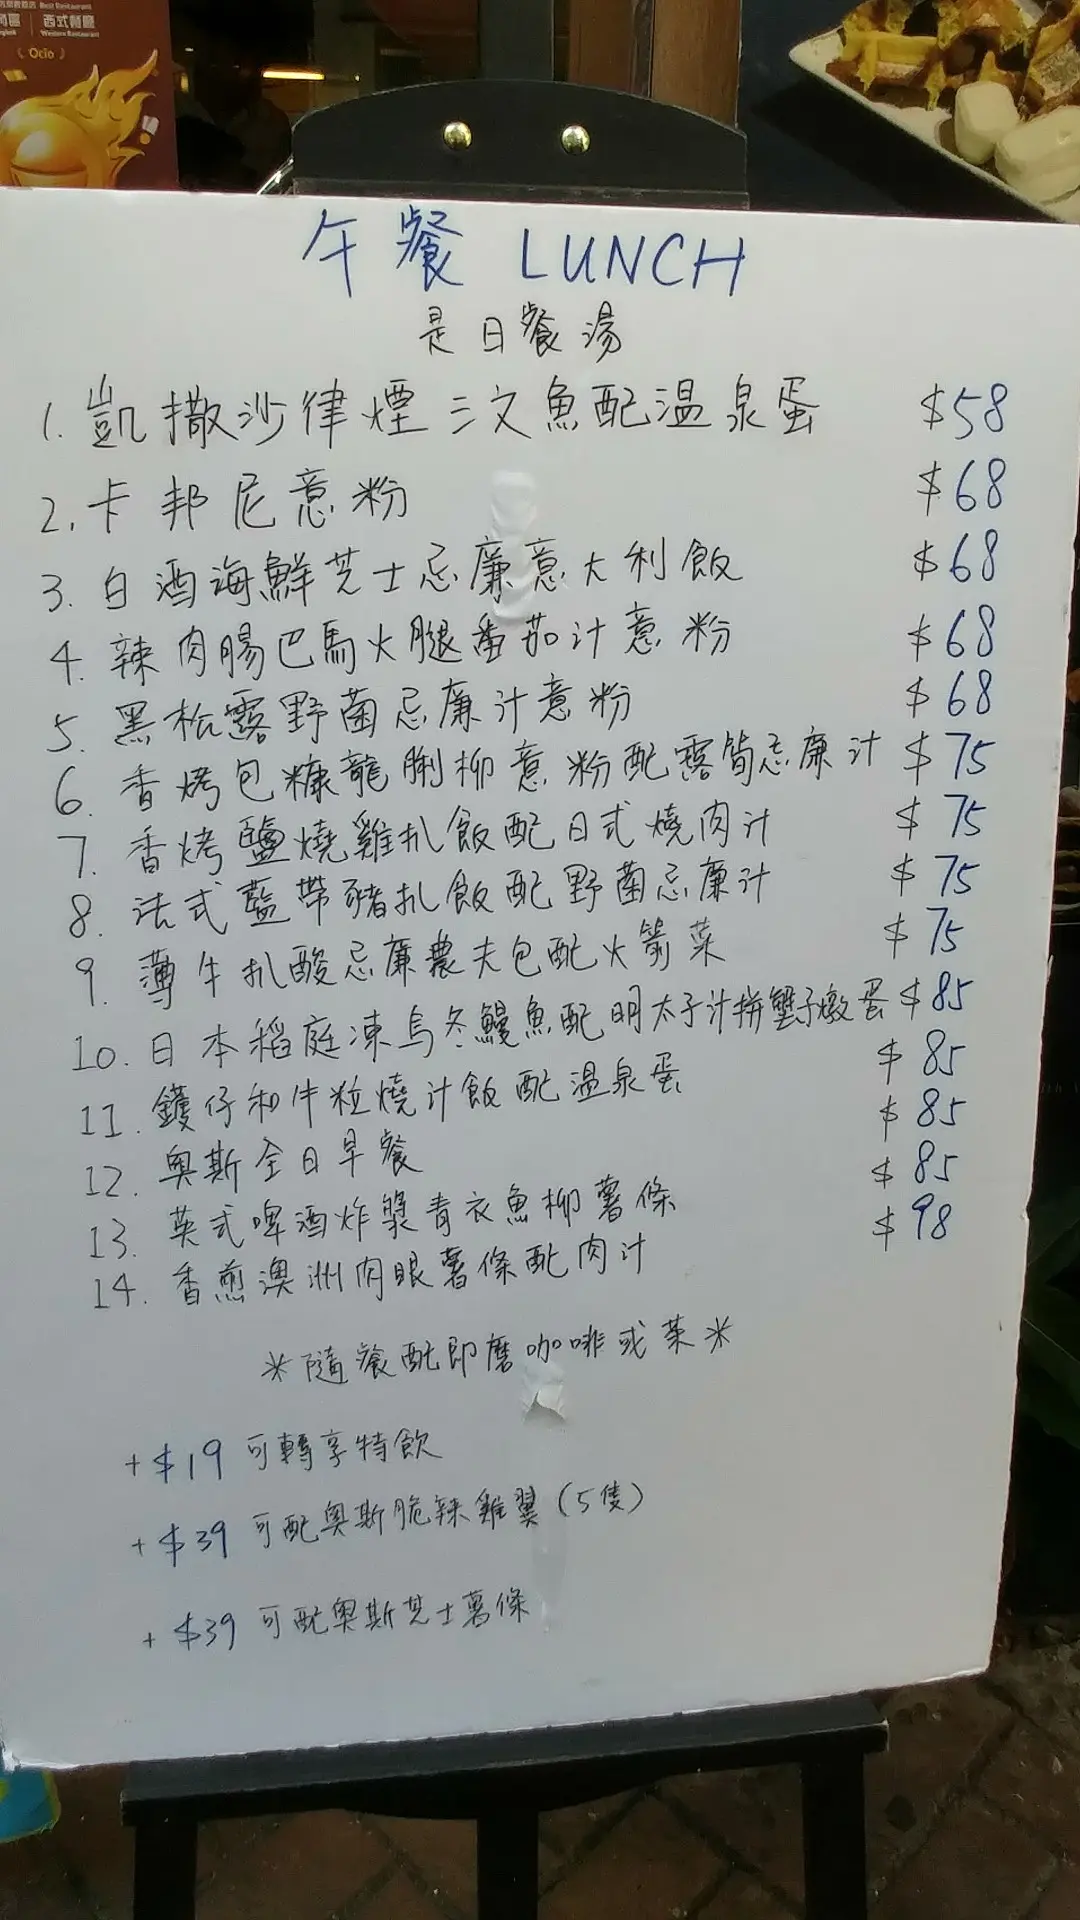 Best Restaurant
西式餐廳
Western Restaurant
《Ocio》
午餐 LUNCH
是日餐湯
1. 凱撒沙律煙三文魚配温泉蛋 $58
2. 卡邦尼意粉 $68
3. 白酒海鮮芝士忌廉意大利飯 $68
4. 辣肉腸巴馬火腿番茄汁意粉 $68
5. 黑松露野菌忌廉汁意粉 $68
6. 香烤包糠龍脷柳意粉配露筍忌廉汁 $75
7. 香烤鹽燒雞扒飯配日式燒肉汁 $75
8. 法式藍帶豬扒飯配野菌忌廉汁 $75
9. 薄牛扒酸忌廉農夫包配火箭菜 $75
10. 日本稻庭凍烏冬鰻魚配明太子汁拼蟹子燉蛋 $85
11. 鑊仔和牛粒燒汁飯配温泉蛋 $85
12. 奧斯全日早餐 $85
13. 英式啤酒炸漿青衣魚柳薯條 $85
14. 香煎澳洲肉眼薯條配肉汁 $98
*隨餐配即磨咖啡或茶*
+$19 可轉享特飲
+$39 可配奧斯脆辣雞翼(5隻)
+$39 可配奧斯芝士薯條